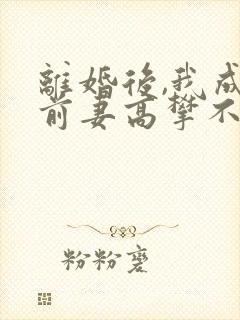 離婚後,我成
前妻高攀不
粉粉蹇